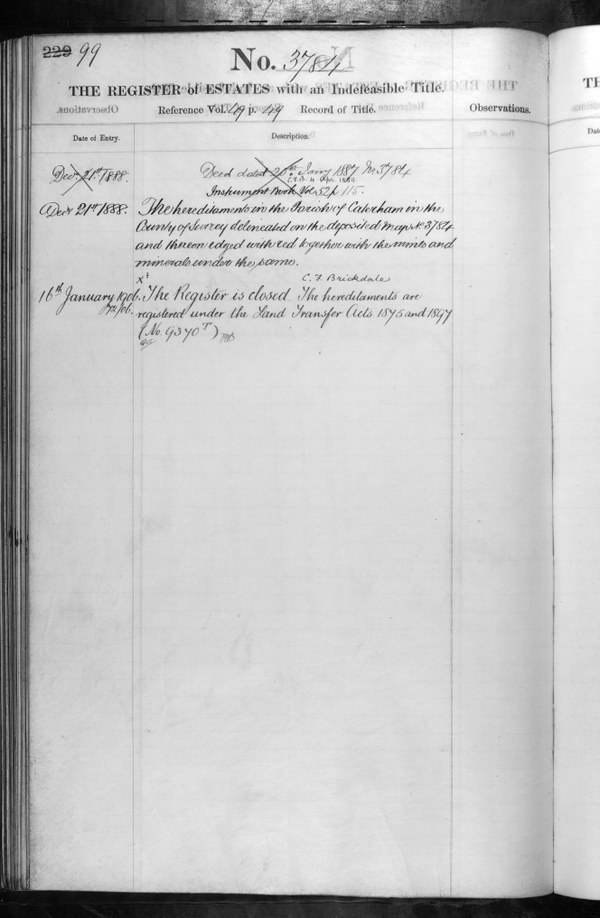 229 99
No. 3784
THE REGISTER of ESTATES with an Indefeasible Title.
Reference Vol. 49 p. 49 Record of Title.
Observations.
Date of Entry.
Description.
Decr. 21st 1888. Deed dated 20th Janry 1887 No 3784
Instrument Book Vol 52 p 115.
Decr 21st 1888. The hereditaments in the Parish of Caterham in the
County of Surrey delineated on the deposited map No 3784
and thereon edged with red together with the mines and
minerals under the same.
C. F. Brickdale
16th January 1906. The Register is closed. The hereditaments are
registered under the Land Transfer Acts 1875 and 1897
(No. 9370 T)
TH
Dat